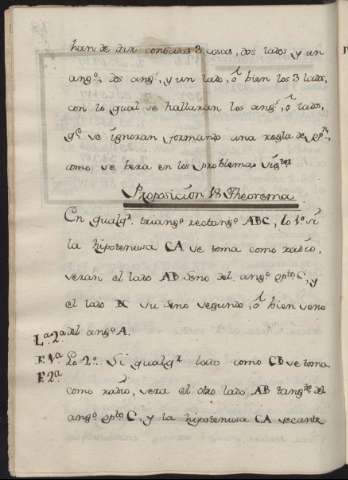 han de dar conosidas 3 cosas, dos lados, y un
ango, dos angs, y un lado, ó bien los 3 lados,
con lo qual se hallaran los angs, ó lados,
qe se ignoran formando una regla de
como se verá en los problemas sigtes
Proposición 18 Theorema
En qualqr triango rectango ABC, lo 1o si
la hipotenusa CA se toma como radio,
serán el lado AB seno del ango opto C, y
el lado BC su seno segundo, ó bien seno
del ango A.
Lo 2o. Si qualqr lado como CB se toma
como radio, sera el otro lado AB tangte del
ango opto C, y la hipotenusa CA secante
La 2a
F. 1a
F. 2a